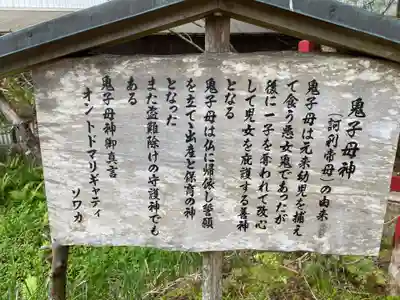 鬼子母神
（訶利帝母）の由来
鬼子母は元来幼児を捕え
て食う悪女鬼であったが
後に一子を奪われて改心
して児女を庇護する善神
となる
鬼子母は仏に帰依し誓願
を立て出産と保育の神
となった
また盗難除けの守護神でも
ある
鬼子母神御真言
オントドマリギャキティ
ソワカ